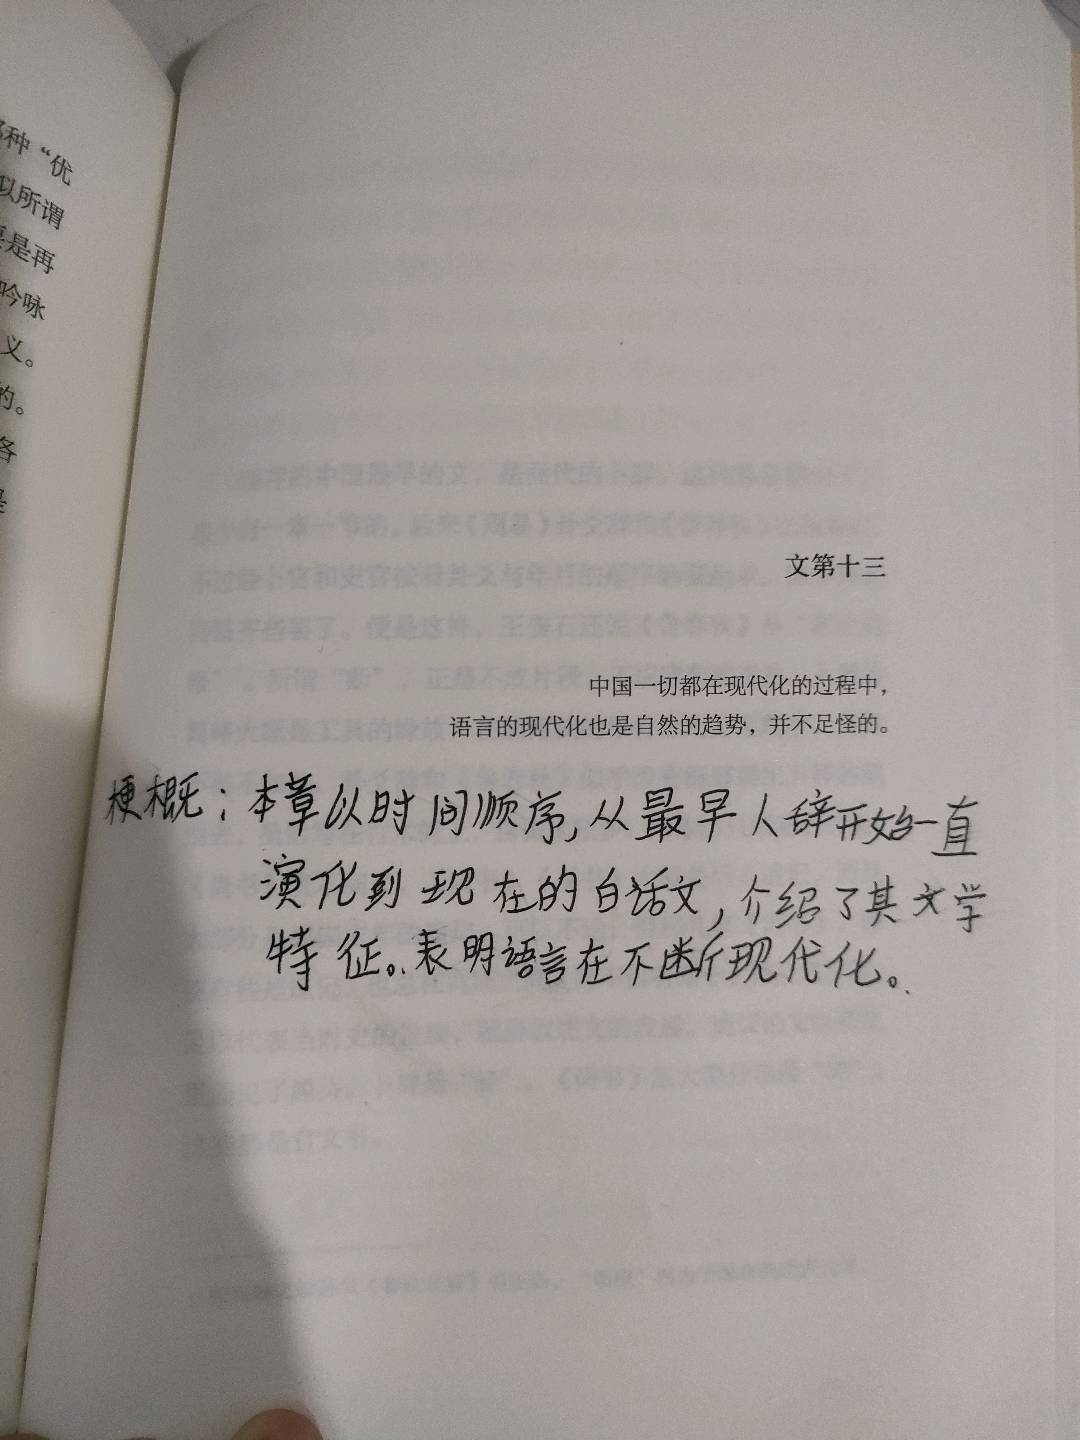 种“优
以所谓
是再
吟咏
义。
的。
各
是
文第十三
中国一切都在现代化的过程中，
语言的现代化也是自然的趋势，并不足怪的。
梗概：本章以时间顺序，从最早人辞开始一直
演化到现在的白话文，介绍了其文学
特征。表明语言在不断现代化。